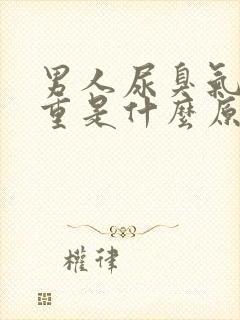 男人尿臭氣
重是什麼原
權律